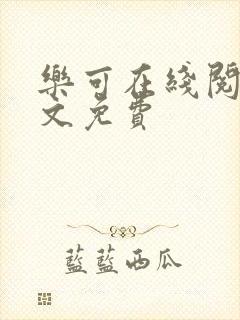 樂可在綫閱
文免費
藍藍西瓜